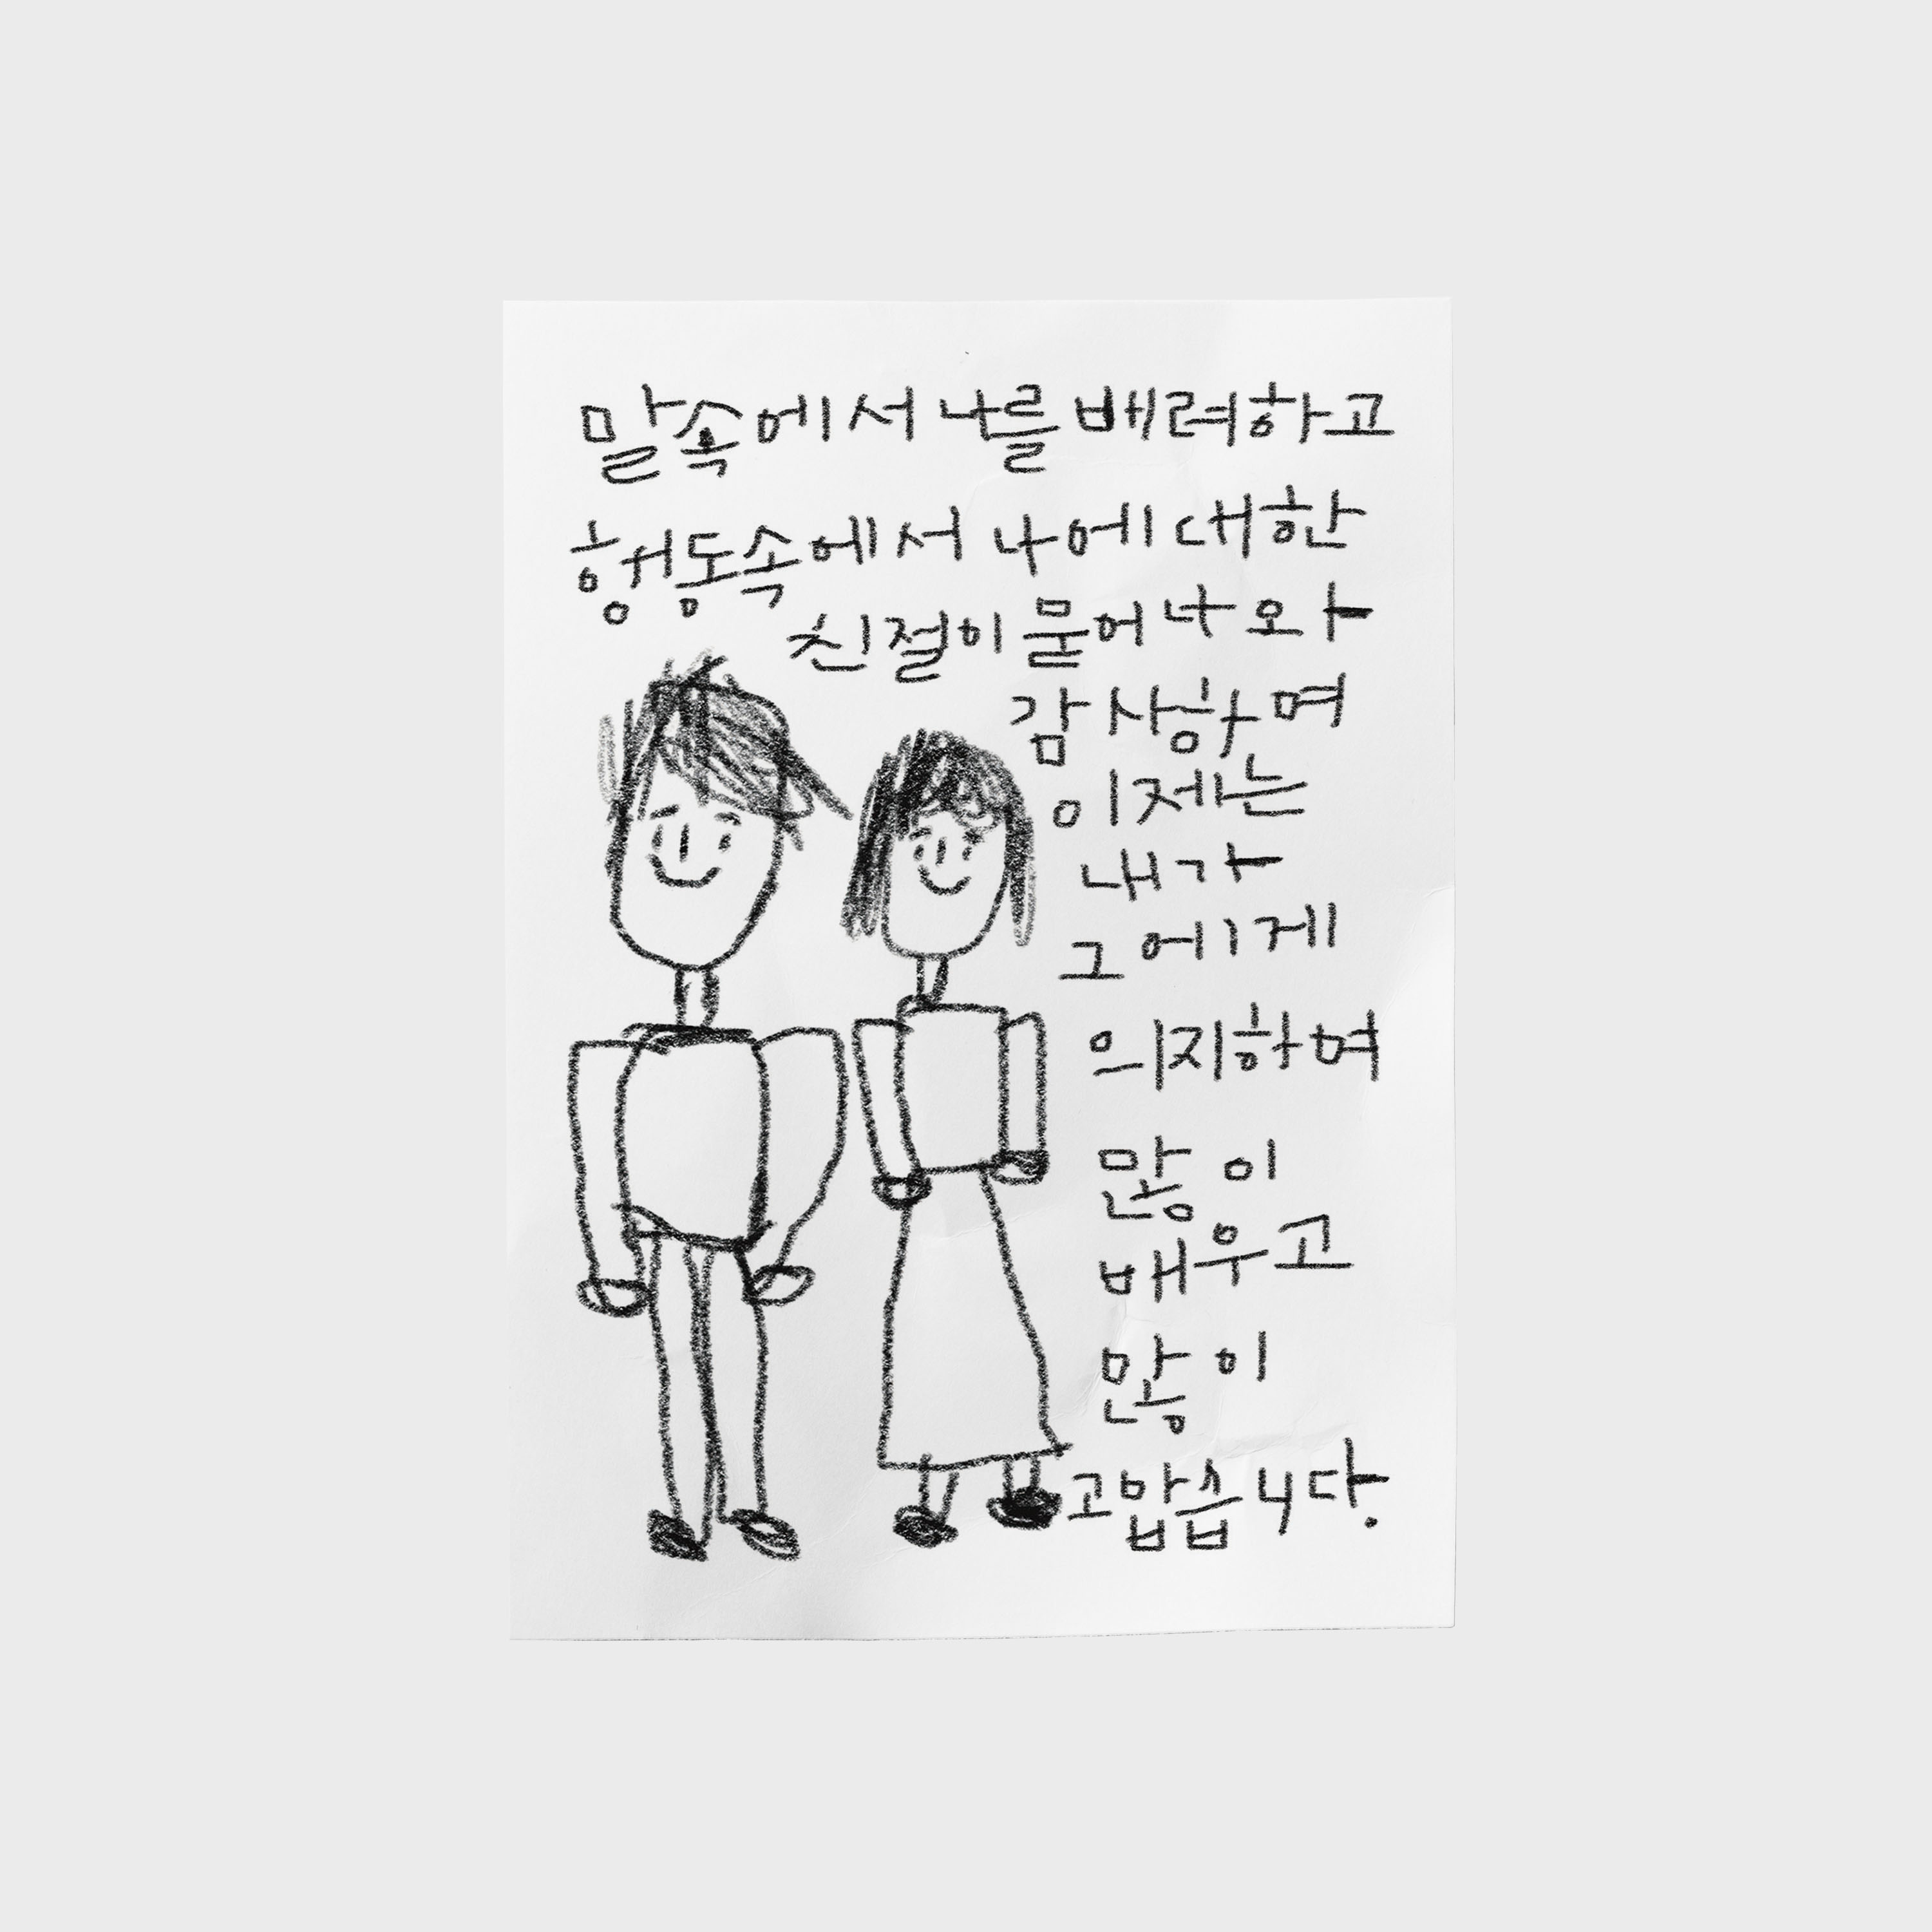 말속에서 나를 배려하고
행동속에서 나에 대한
친절이 묻어 나와
감사하며
이제는
내가
그에게
의지하며
많이
배우고
많이
고맙습니다.